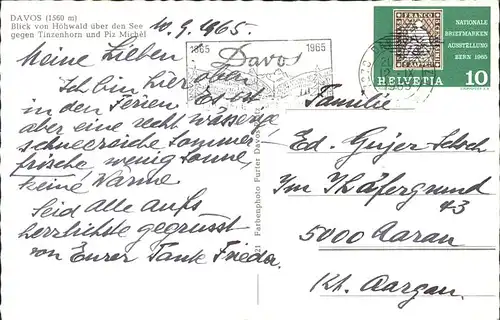 DAVOS (1560 m)
Blick von Höhwald über den See
gegen Tinzenhorn und Piz Michèl
10.9.1965.
Meine Lieben
Ich bin hier oben
in den Ferien. Es ist
aber eine recht wässerige
schneereiche Sommer-
frische, wenig Sonne,
keine Wärme.
Seid alle aufs
herzlichste gegrüsst
von Eurer Tante Frieda.
1865 1965
Davos
FRANCO
NATIONALE
BRIEFMARKEN
AUSSTELLUNG
BERN 1965
HELVETIA 10
Farbenphoto Furter Davos
Familie
Ed. Gujer
Im Schäfergrund
43
5000 Aarau
Kt. Aargau.